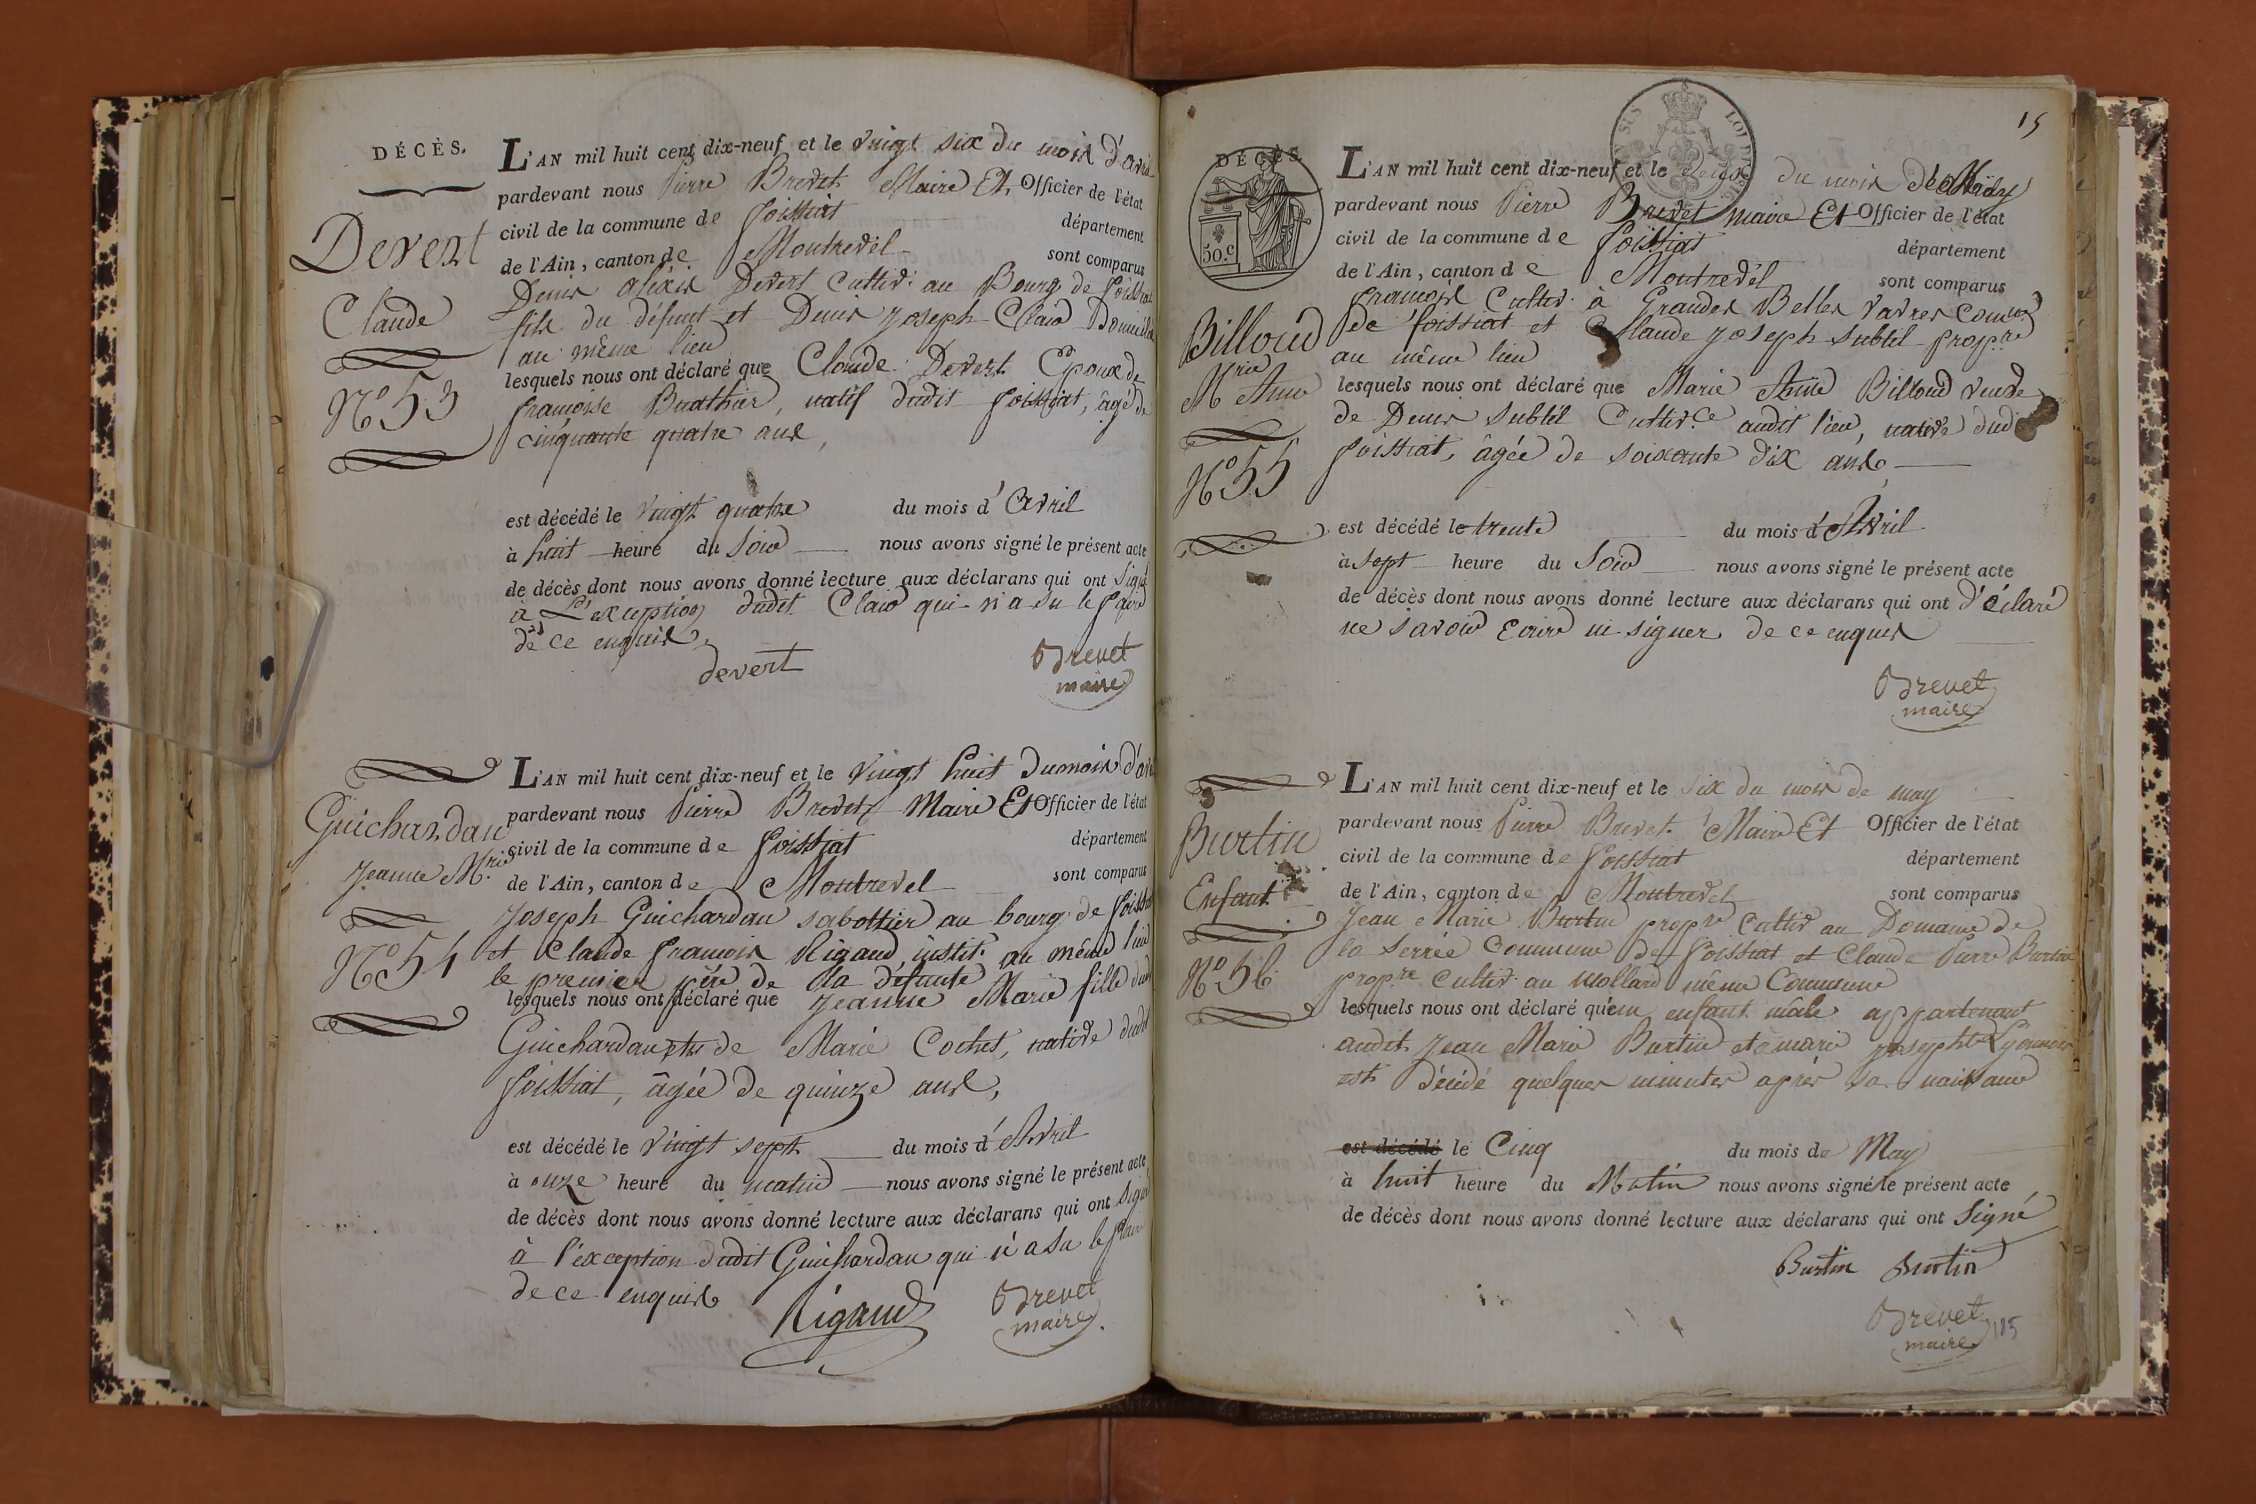 DÉCÈS.
Devert
Claude
N.o 53
L'AN mil huit cent dix-neuf et le vingt six du mois d'avril
pardevant nous Pierre Brevet Maire Et Officier de l'état
civil de la commune de foissiat département
de l'Ain, canton de Montrevel sont comparus
Denis aléxis Devert cultiv. au Bourg de foissiat
fils du défunt et Denis Joseph Claid Domicilié
au même lieu
lesquels nous ont déclaré que Claude Devert Epoux de
francoise Buathier, natif dudit foissiat, âgé de
cinquante quatre ans,
est décédé le vingt quatre du mois d'Avril
à huit heure du Soir nous avons signé le présent acte
de décès dont nous avons donné lecture aux déclarans qui ont Signé
à L'exception dudit Claid qui n'a su le faire
de ce enquis
devert
Brevet
maire
Guichardan
Jeanne M.rie
N.o 54
L'AN mil huit cent dix-neuf et le vingt huit du mois d'avr
pardevant nous Pierre Brevet Maire Et Officier de l'état
civil de la commune de foissiat département
de l'Ain, canton de Montrevel sont comparus
Joseph Guichardan sabottier au bourg de foissiat
et Claude francois Rigaud, instit. au même lieu
le premier père de la défunte
lesquels nous ont déclaré que Jeanne Marie fille dud
Guichardan et de Marie Cochet, native dudit
foissiat, âgée de quinze ans,
est décédé le vingt sept du mois d'Avril
à onze heure du matin nous avons signé le présent acte
de décès dont nous avons donné lecture aux déclarans qui ont Signé
à l'éxception dudit Guichardan qui n'a su le faire
de ce enquis
Rigaud
Brevet
maire
15
DÉCÈS.
50.c
Billoud
M.rie Anne
N.o 55
L'AN mil huit cent dix-neuf et le du mois de May
pardevant nous Pierre Brevet maire Et Officier de l'état
civil de la commune de foissiat département
de l'Ain, canton de Montrevel sont comparus
francois Cultiv. à Grandes Belles Vavres comm.
de foissiat et Claude Joseph Subtil prop.re
au même lieu
lesquels nous ont déclaré que Marie Anne Billoud veuve
de Denis Subtil Cultiv.ce audit lieu, native dud
foissiat, âgée de soixante dix ans
est décédé le trente du mois d'Avril
à sept heure du Soir nous avons signé le présent acte
de décès dont nous avons donné lecture aux déclarans qui ont d'éclaré
ne savoir Ecrire ni signer de ce enquis
Brevet
maire
Burtin
Enfant
N.o 56
L'AN mil huit cent dix-neuf et le Six du mois de may
pardevant nous Pierre Brevet Maire Et Officier de l'état
civil de la commune de foissiat département
de l'Ain, canton de Montrevel sont comparus
Jean Marie Burtin prop.re cultiv au Domaine de
la Serrée Commune de foissiat et Claude Pierre Burtin
prop.re cultiv. au Mollard même Commune
lesquels nous ont déclaré qu'un enfant mâle appartenant
audit Jean Marie Burtin et à marie josephte Lyonnois
est décédé quelques minutes après sa naissance
est décédé le Cinq du mois de May
à huit heure du Matin nous avons signé le présent acte
de décès dont nous avons donné lecture aux déclarans qui ont Signé
Burtin Burtin
Brevet
maire
115